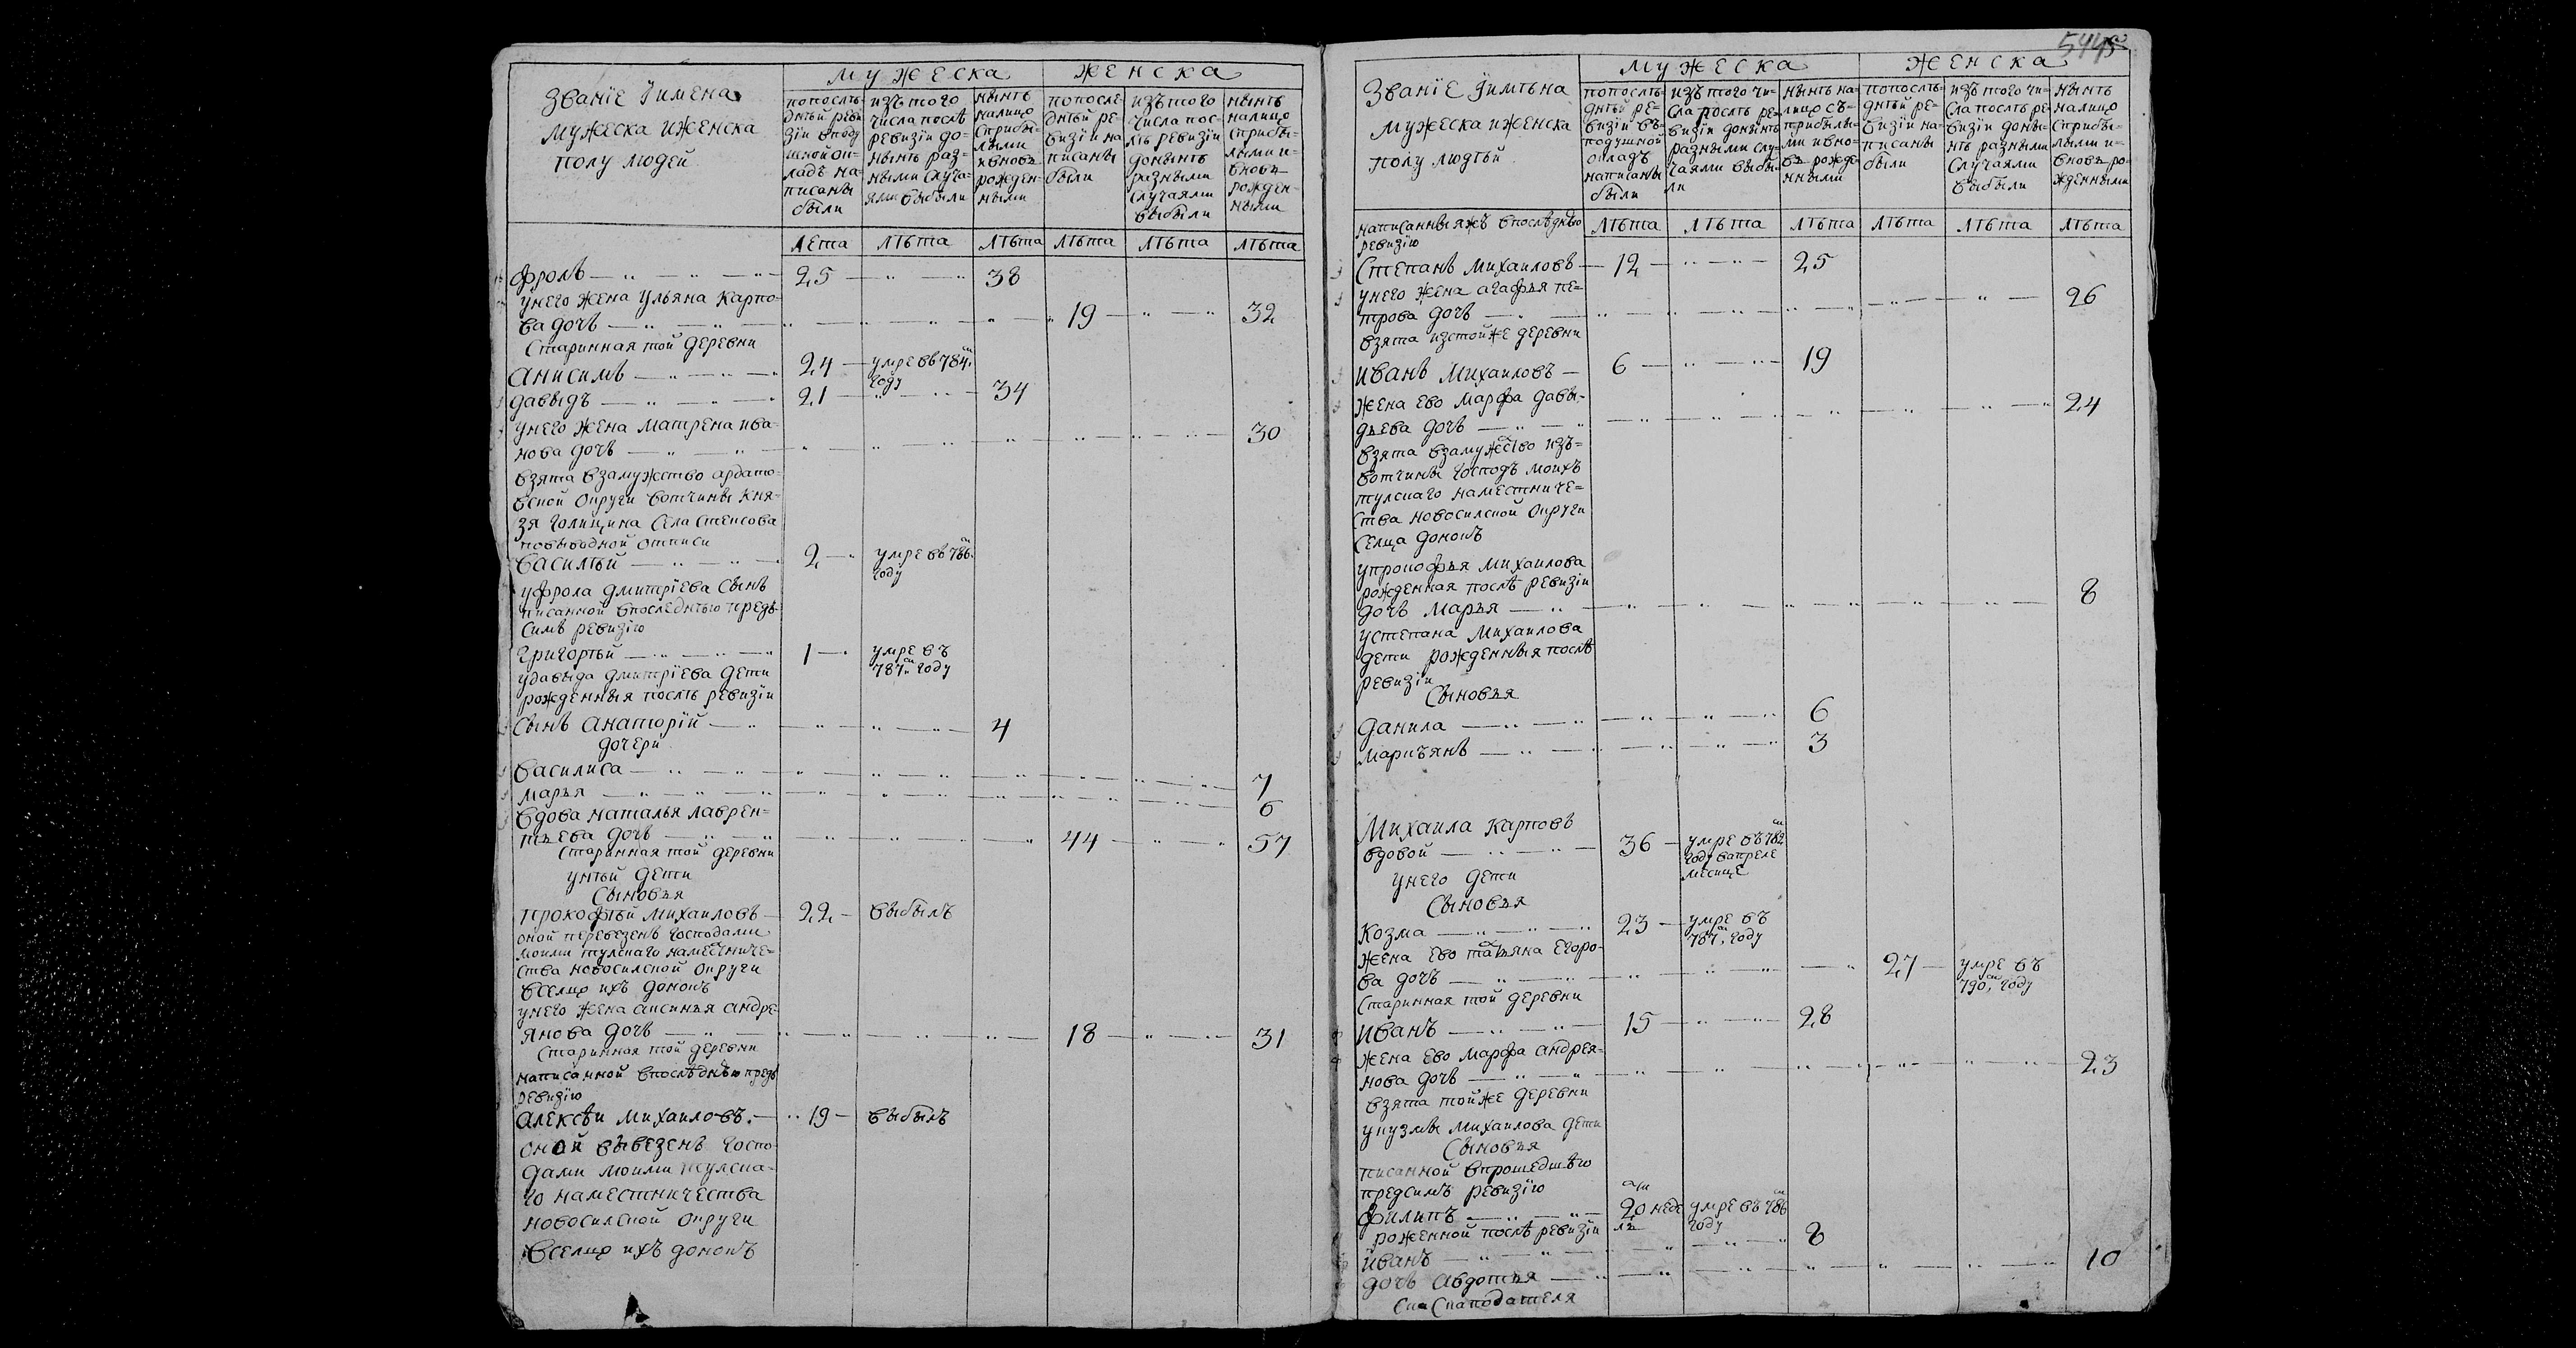 МУЖЕСКА ЖЕНСКА
Званіе Iимена
мужеска иженска
полу людей
попослѣ-
днѣй реви-
зіи вподу
шной ок-
ладъ на-
писаны
были
изъ того
числа послѣ
ревизіи до-
нынѣ раз-
ными случа-
ями выбыли
нынѣ
налицо
сприбы-
лыми
ивновь
рожден-
ными
попосле-
днѣй ре-
визіи на
писаны
были
изъ того
числа пос-
лѣ ревизіи
донынѣ
разными
случаями
выбыли
нынѣ
налицо
сприбы-
лыми и-
вновь
рожден-
ными
лета лѣта лѣта лѣта лѣта лѣта
Фролъ 25 38
унего жена Ульяна Карпо-
ва дочь 19 32
Старинная той деревни
Анисимъ 24 умре вв 784м
году
давыдъ 21 34
унего жена матрена ива-
нова дочь 30
взята взамужство ардато-
вской округи вотчины кня-
зя голицина села стексова
повыводной отписи
василѣй 2 умре вв 786м
году
уфрола дмитріева сынъ
писанной впоследнѣю предъ
симъ ревизію
григорѣй 1 умре въ
787м году
удавыда дмитріева дети
рожденныя послѣ ревизіи
сынъ анаторій 4
дочери
василиса 7
марья 6
вдова наталья лаврен=
тьева дочь 44 57
Старинная той деревни
унѣй дети
Сыновья
прокофѣй михаиловъ 22 выбылъ
оной перевезенъ господами
моими тулскаго наместниче=
ства новосилской округи
вселцо ихъ доможъ
унего жена аксинья андре
янова дочь 18 31
Старинная той деревни
написанной впослѣднѣю предъ
ревизію
алексѣи михаиловъ 19 выбылъ
оной вывезенъ госпо-
дами моими тулска-
го наместничества
новосилской округи
вселцо ихъ доможъ
5445
МУЖЕСКА ЖЕНСКА
Званіе Iимѣна
мужеска иженска
полу людѣй
попослѣ-
днѣй ре-
визіи въ-
подушной
окладъ
написаны
были
изъ того чи-
сла послѣ ре-
визіи донынѣ
разными слу-
чаями выбы
ли
нынѣ на-
лицо съ-
прибылы-
ми ивно-
вь рожде
нными
попослѣ-
днѣй ре-
визіи на-
писаны
были
изъ того чи-
сла послѣ ре-
визіи доны-
нѣ разными
случаями
выбыли
нынѣ
налицо
сприбы-
лыми и-
вновь ро-
жденными
написанныяжъ впослѣднѣю
ревизію
лѣта лѣта лѣта лѣта лѣта лѣта
Степанъ михаиловъ 12 25
унего жена агафья пе=
трова дочь 26
взята изтойже деревни
иванъ михаиловъ 6 19
жена ево марфа давы-
дьева дочь 24
взята взамужство изъ=
вотчины господъ моихъ
тулскаго наместниче=
ства новосилской округи
селца доможъ
упрокофья михаилова
рожденная послѣ ревизіи
дочь марья 8
устепана михаилова
дети рожденныя послѣ
ревизіи
Сыновья
данила 6
маркъянъ 3
Михаила карповъ
вдовой 36 умре въ 782м
году вапреле
месяце
унего дети
Сыновья
козма 23 умре въ
787м году
жена ево татьяна егоро-
ва дочь 27 умре въ
790м году
Старинная той деревни
иванъ 15 28
жена ево марфа андрея-
нова дочь 23
взята тойже деревни
укузмы михаилова дети
Сыновья
писанной впрошедшѣю
предсимъ ревизію
филипъ 20 неде умре въ 786м
ль году
роженной послѣ ревизіи
иванъ 8
дочь авдотья 10